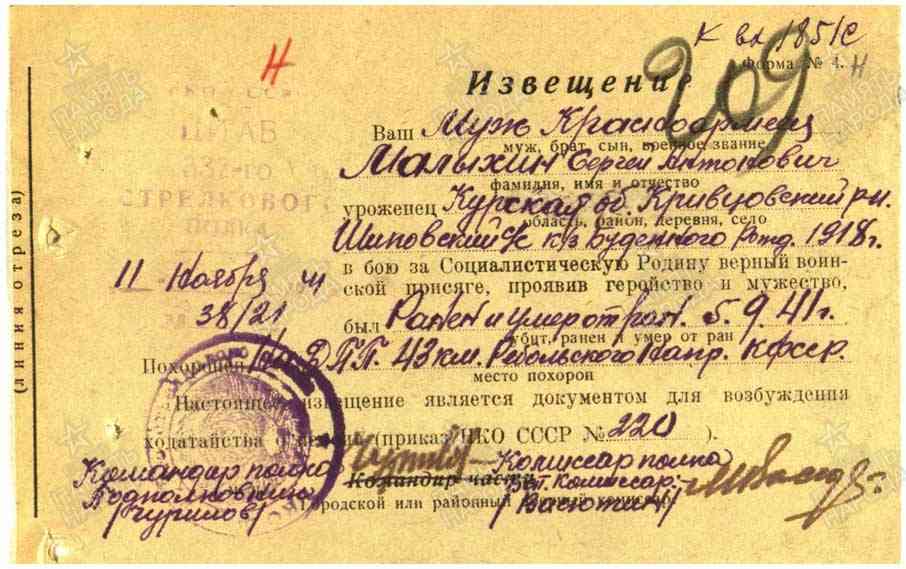 К вх 1851с
Форма № 4.
Н
Н
209
Извещение
ШТАБ
СТРЕЛКОВОГО
Ваш Муж Красноармеец
муж, брат, сын, военное звание
Малыхин Сергей Антонович
фамилия, имя и отчество
уроженец Курская об. Кривцовский р-н.
область, район, деревня, село
Шиповский с/с к/з Буденного рожд. 1918 г.
в бою за Социалистическую Родину верный воин-
ской присяге, проявив геройство и мужество,
11 Ноября 41
38/21
был Ранен и умер от ран. 5.9.41 г.
убит, ранен и умер от ран
Похоронен На ДПП. 43 км. Ребольского Напр. КФССР.
место похорон
Настоящее извещение является документом для возбуждения
ходатайства о пенсии (приказ НКО СССР № 220 ).
Командир полка
Комиссар полка
Подполковник
Командир части
Бат. Комиссар
/Чурилов/
Городской или районный военный комиссар
/Васютин/
(линия отреза)
ПАМЯТЬ
НАРОДА